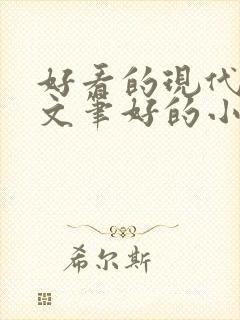 好看的现代
文笔好的小
希尔斯